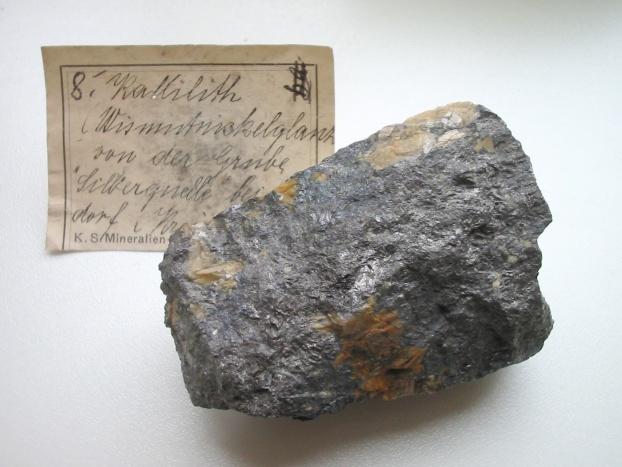 8. Kallilith
(Wismutnickelglanz
von der Grube
"Silberquelle" bei
dorf (
K. S. Mineralien